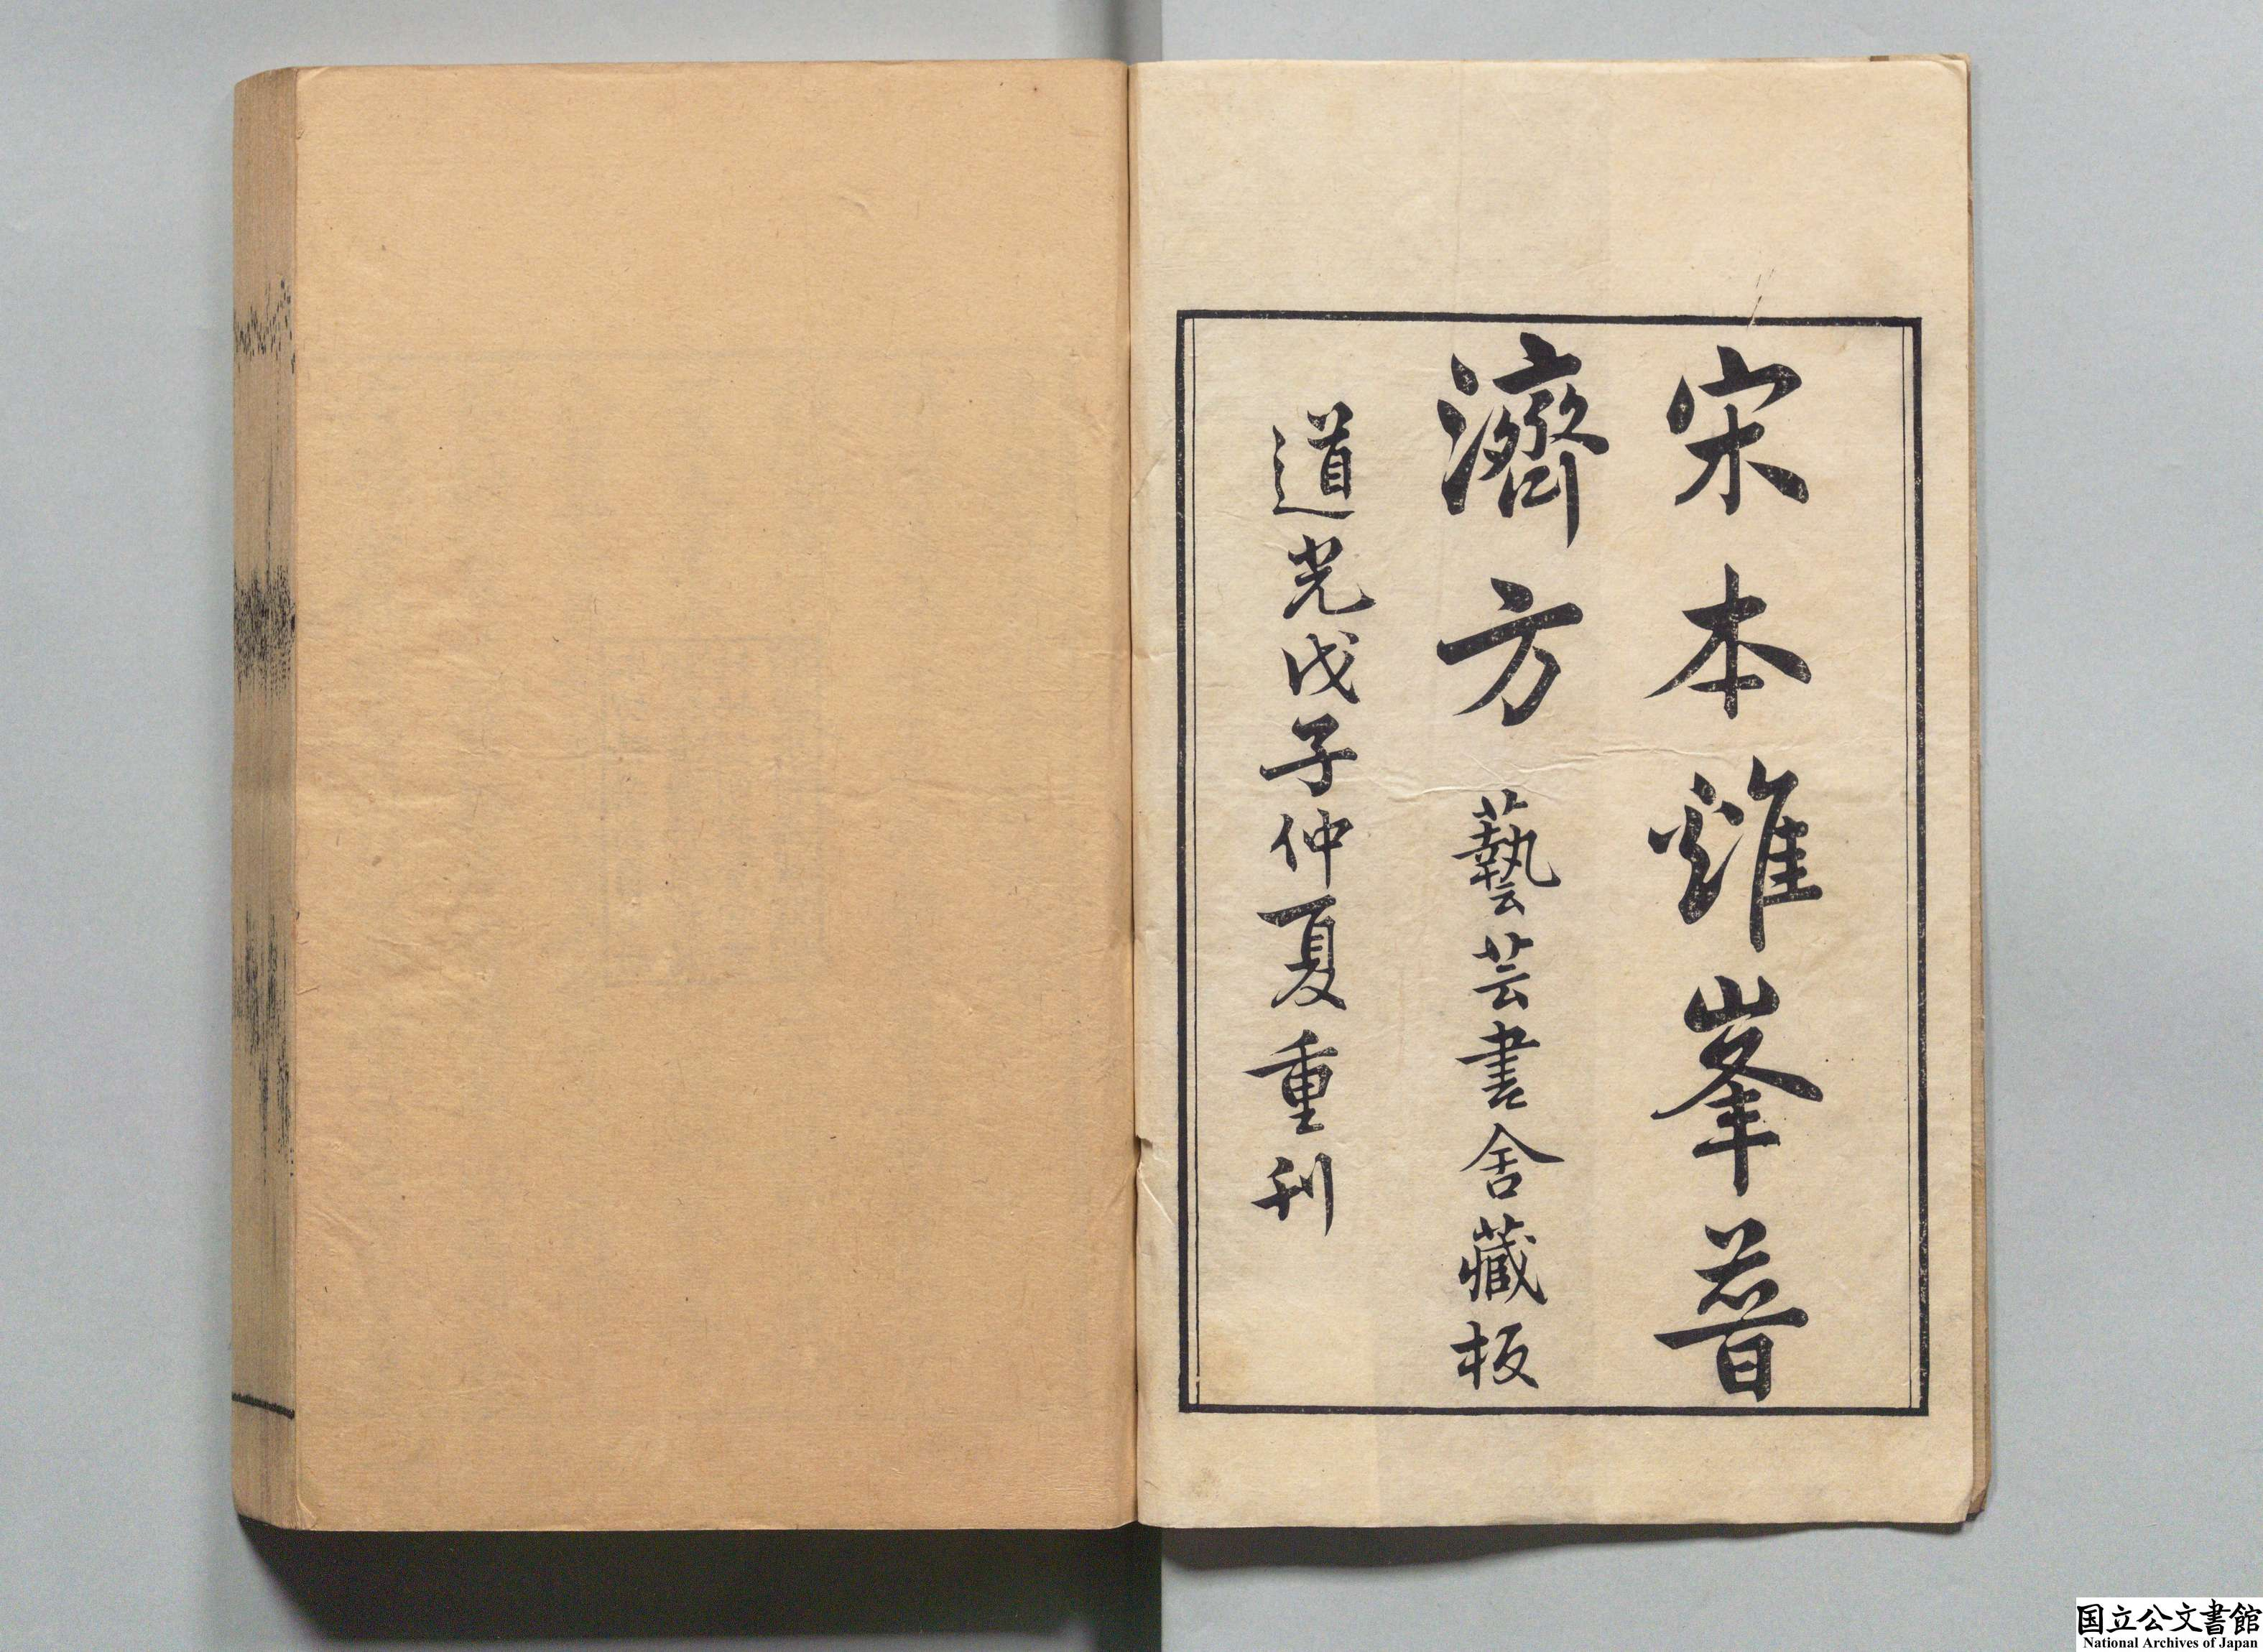 宋本雞峯普
濟方 藝芸書舍藏板
道光戊子仲夏重刊
国立公文書館
National Archives of Japan